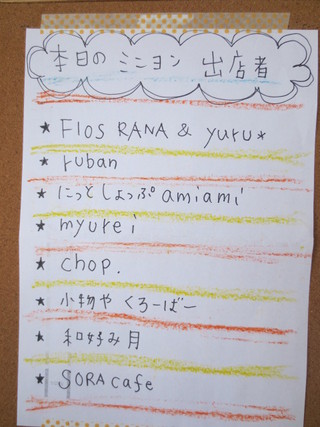 本日の ミニヨン 出店者
★ Flos RANA & yuru*
★ ruban
★ にっとしょっぷ amiami
★ myurei
★ chop.
★ 小物や くろーばー
★ 和好み月
★ SORA cafe